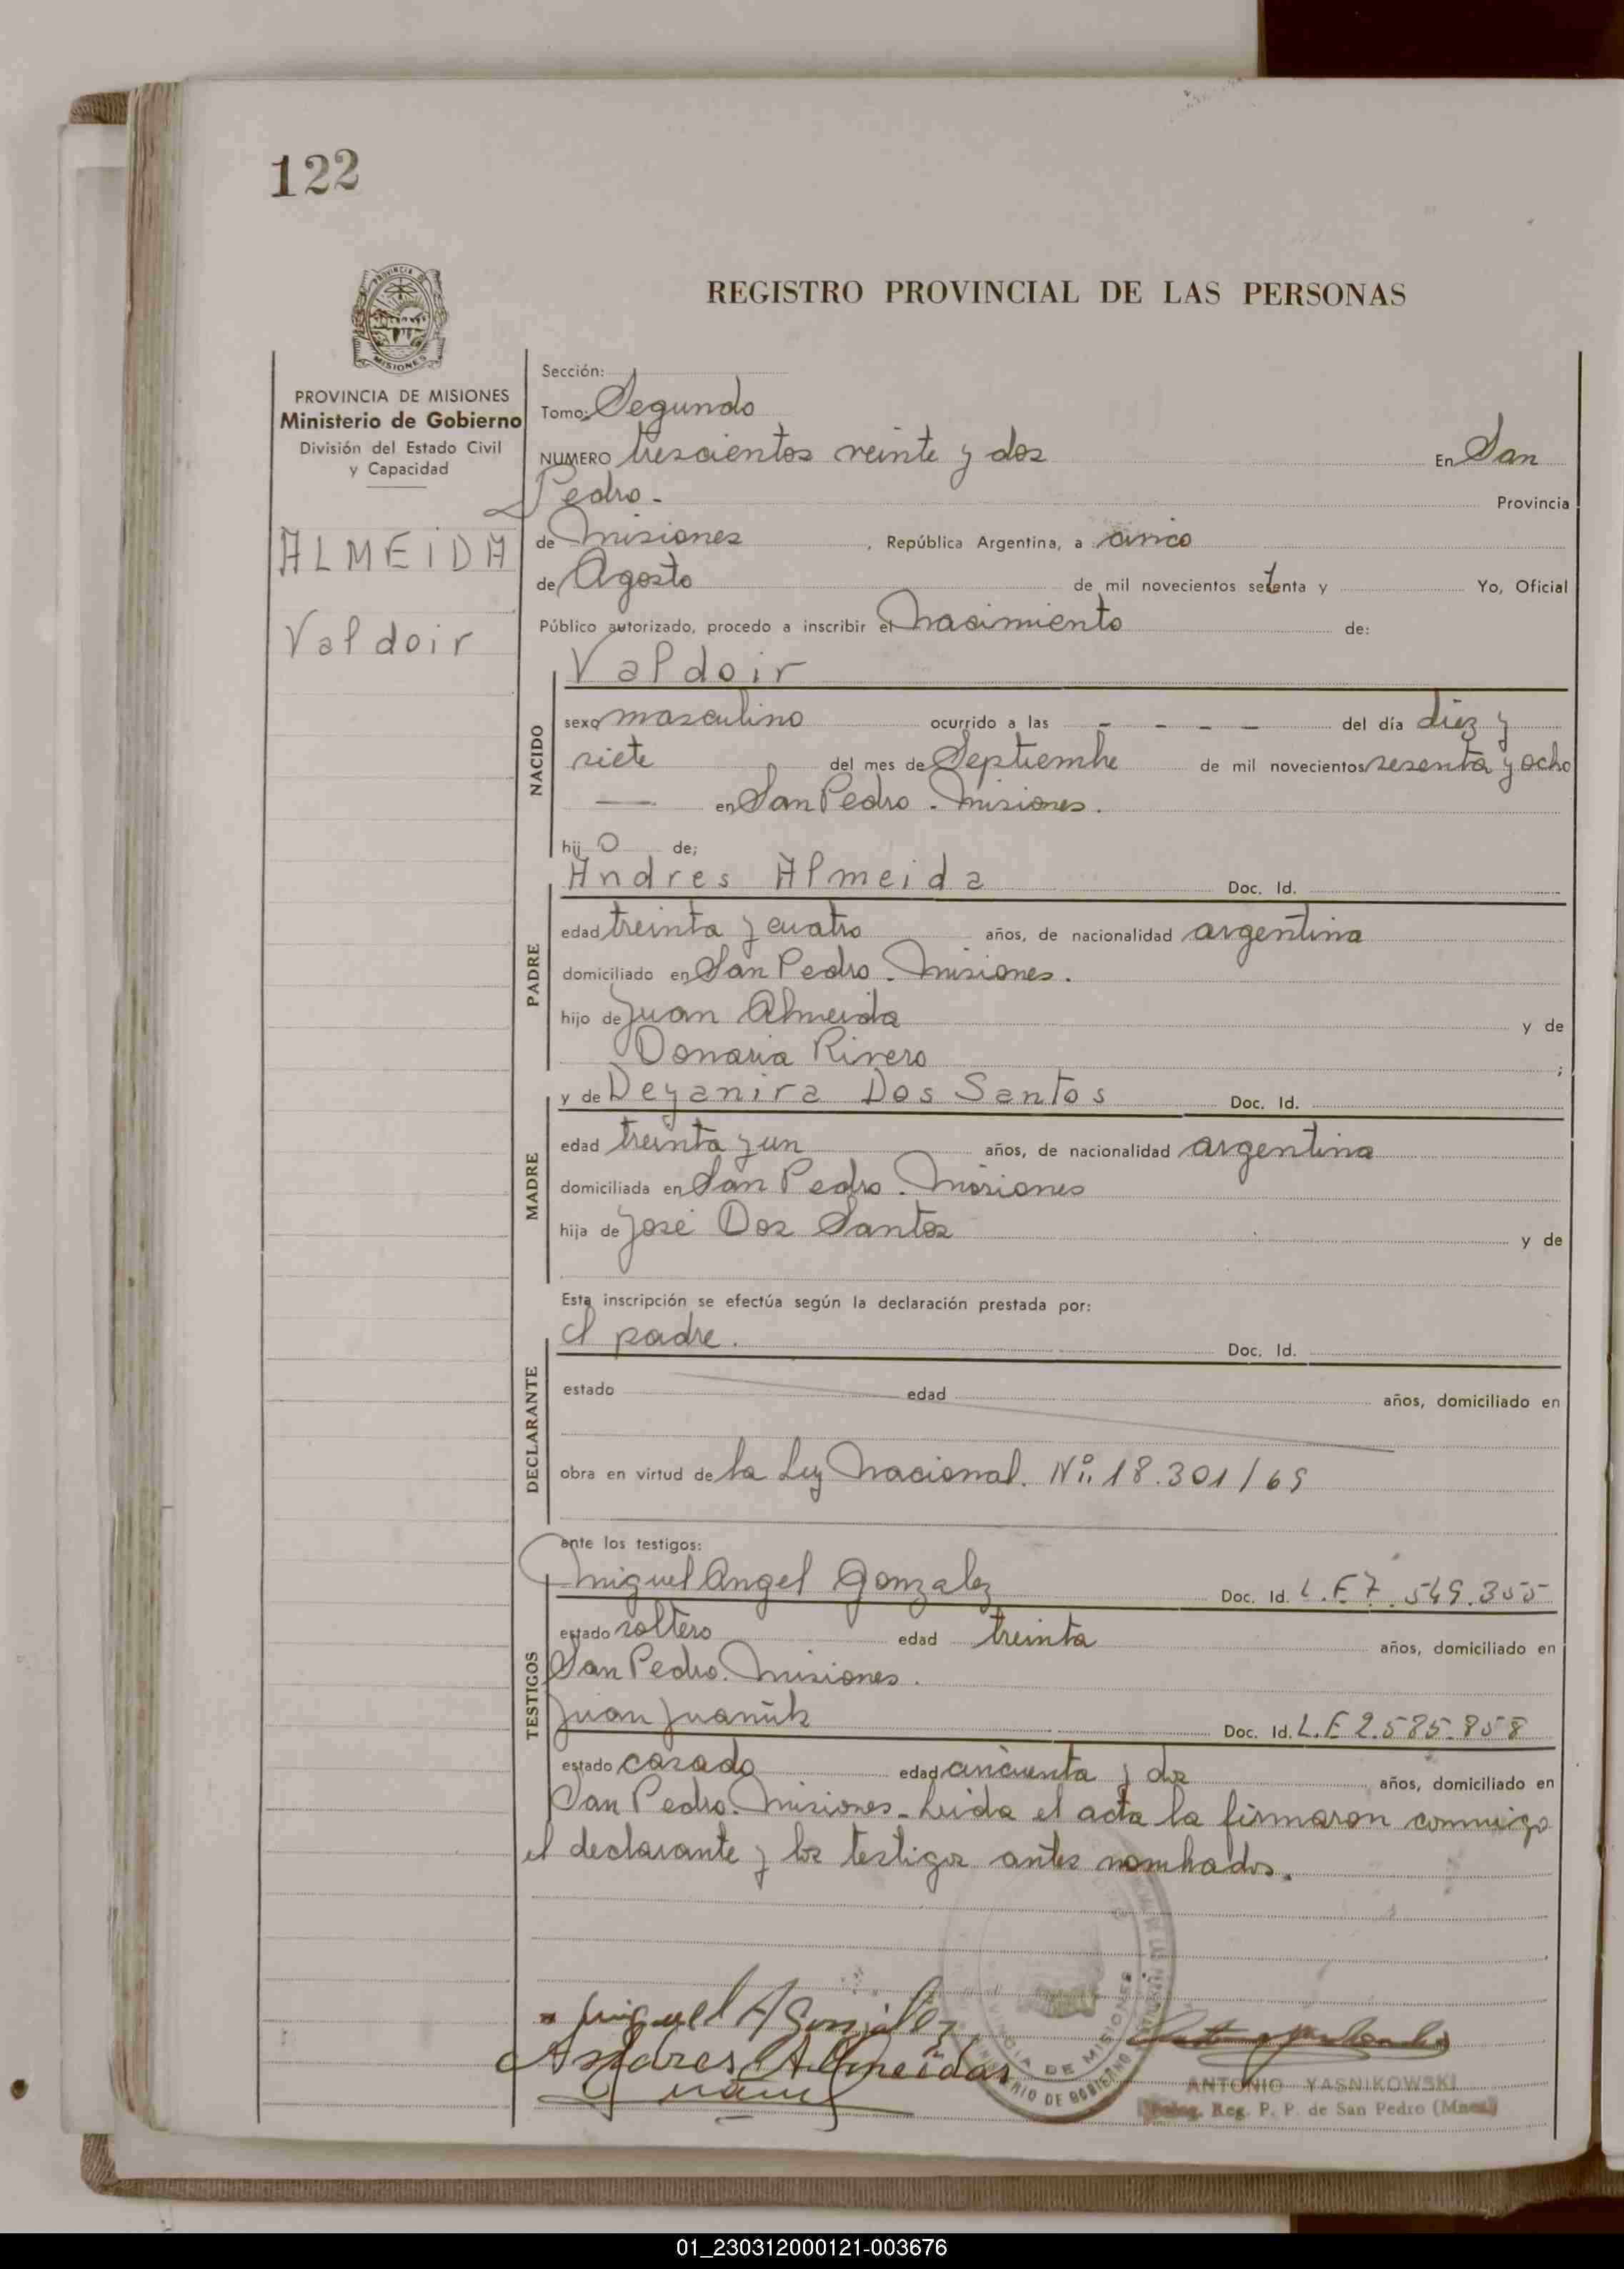 122
REGISTRO PROVINCIAL DE LAS PERSONAS
PROVINCIA DE MISIONES
MISIONES
PROVINCIA DE MISIONES
Ministerio de Gobierno
División del Estado Civil
y Capacidad
ALMEIDA
Valdoir
Sección:
Tomo: Segundo
NUMERO trescientos veinte y dos En San
Pedro - Provincia
de Misiones, República Argentina, a cinco
de Agosto de mil novecientos setenta y Yo, Oficial
Público autorizado, procedo a inscribir el Nacimiento de:
Valdoir
NACIDO
sexo masculino ocurrido a las - - - - del día diez y
siete del mes de Septiembre de mil novecientos sesenta y ocho
— en San Pedro - Misiones.
hijo de;
Andres Almeida Doc. Id.
PADRE
edad treinta y cuatro años, de nacionalidad argentina
domiciliado en San Pedro - Misiones.
hijo de Juan Almeida y de
Donaria Rivero ;
y de Deyanira Dos Santos Doc. Id.
MADRE
edad treinta y un años, de nacionalidad argentina
domiciliada en San Pedro - Misiones
hija de José Dos Santos y de
Esta inscripción se efectúa según la declaración prestada por:
el padre. Doc. Id.
DECLARANTE
estado edad años, domiciliado en
obra en virtud de la Ley Nacional. Nº 18.301/69
ante los testigos:
Miguel Angel Gonzalez Doc. Id. L.E 7.549.355
TESTIGOS
estado soltero edad treinta años, domiciliado en
San Pedro. Misiones.
Juan Juaniuk Doc. Id. L.E 2.585.858
estado casado edad cincuenta y dos años, domiciliado en
San Pedro. Misiones - Leida el acta la firmaron conmigo
el declarante y los testigos antes nombrados.
Miguel A Gonzalez
Andres Almeidas
PROVINCIA DE MISIONES
MINISTERIO DE GOBIERNO
ANTONIO YASNIKOWSKI
Reg. P. P. de San Pedro (Mnes)
01_230312000121-003676